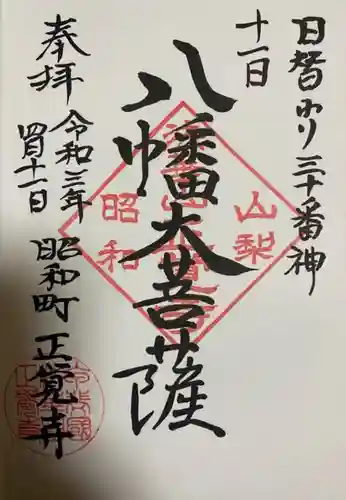 日替わり三十番神
十一日
八幡大菩薩
奉拝
令和三年
四月十一日
昭和町 正覚寺
山梨
昭和